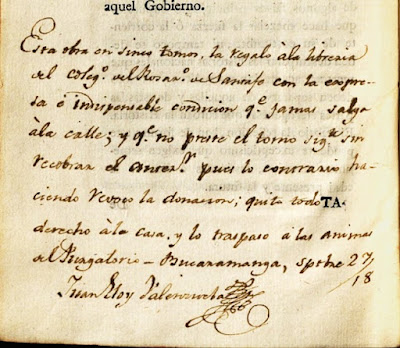 aquel Gobierno.
Esta obra en sinco tomos, la regalo âla libreria
del Colegº. del Rosarº. de Santafe con la expre-
sa é indispensable condicion qᵉ. jamas salga
âla calle; y qᵉ. no preste el tomo sigᵗᵉ. sin
recobrar el anterʳ. pues lo contrario ha-
ciendo revoco la donacion; quito todo TA-
derecho â la casa. y lo traspaso á las animas
del Purgatorio - Bucaramanga, sptbre 27/18
Juan Eloy Valenzuela